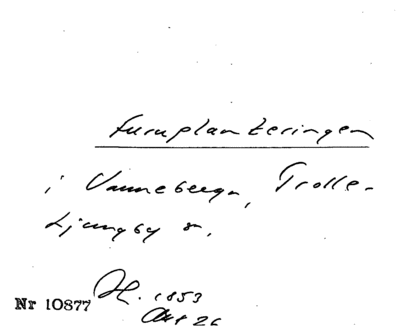 Furuplanteringen
i Vanneberga, Trolle-
Ljungby s.
Nr 10877 H. 1853
Akt 26